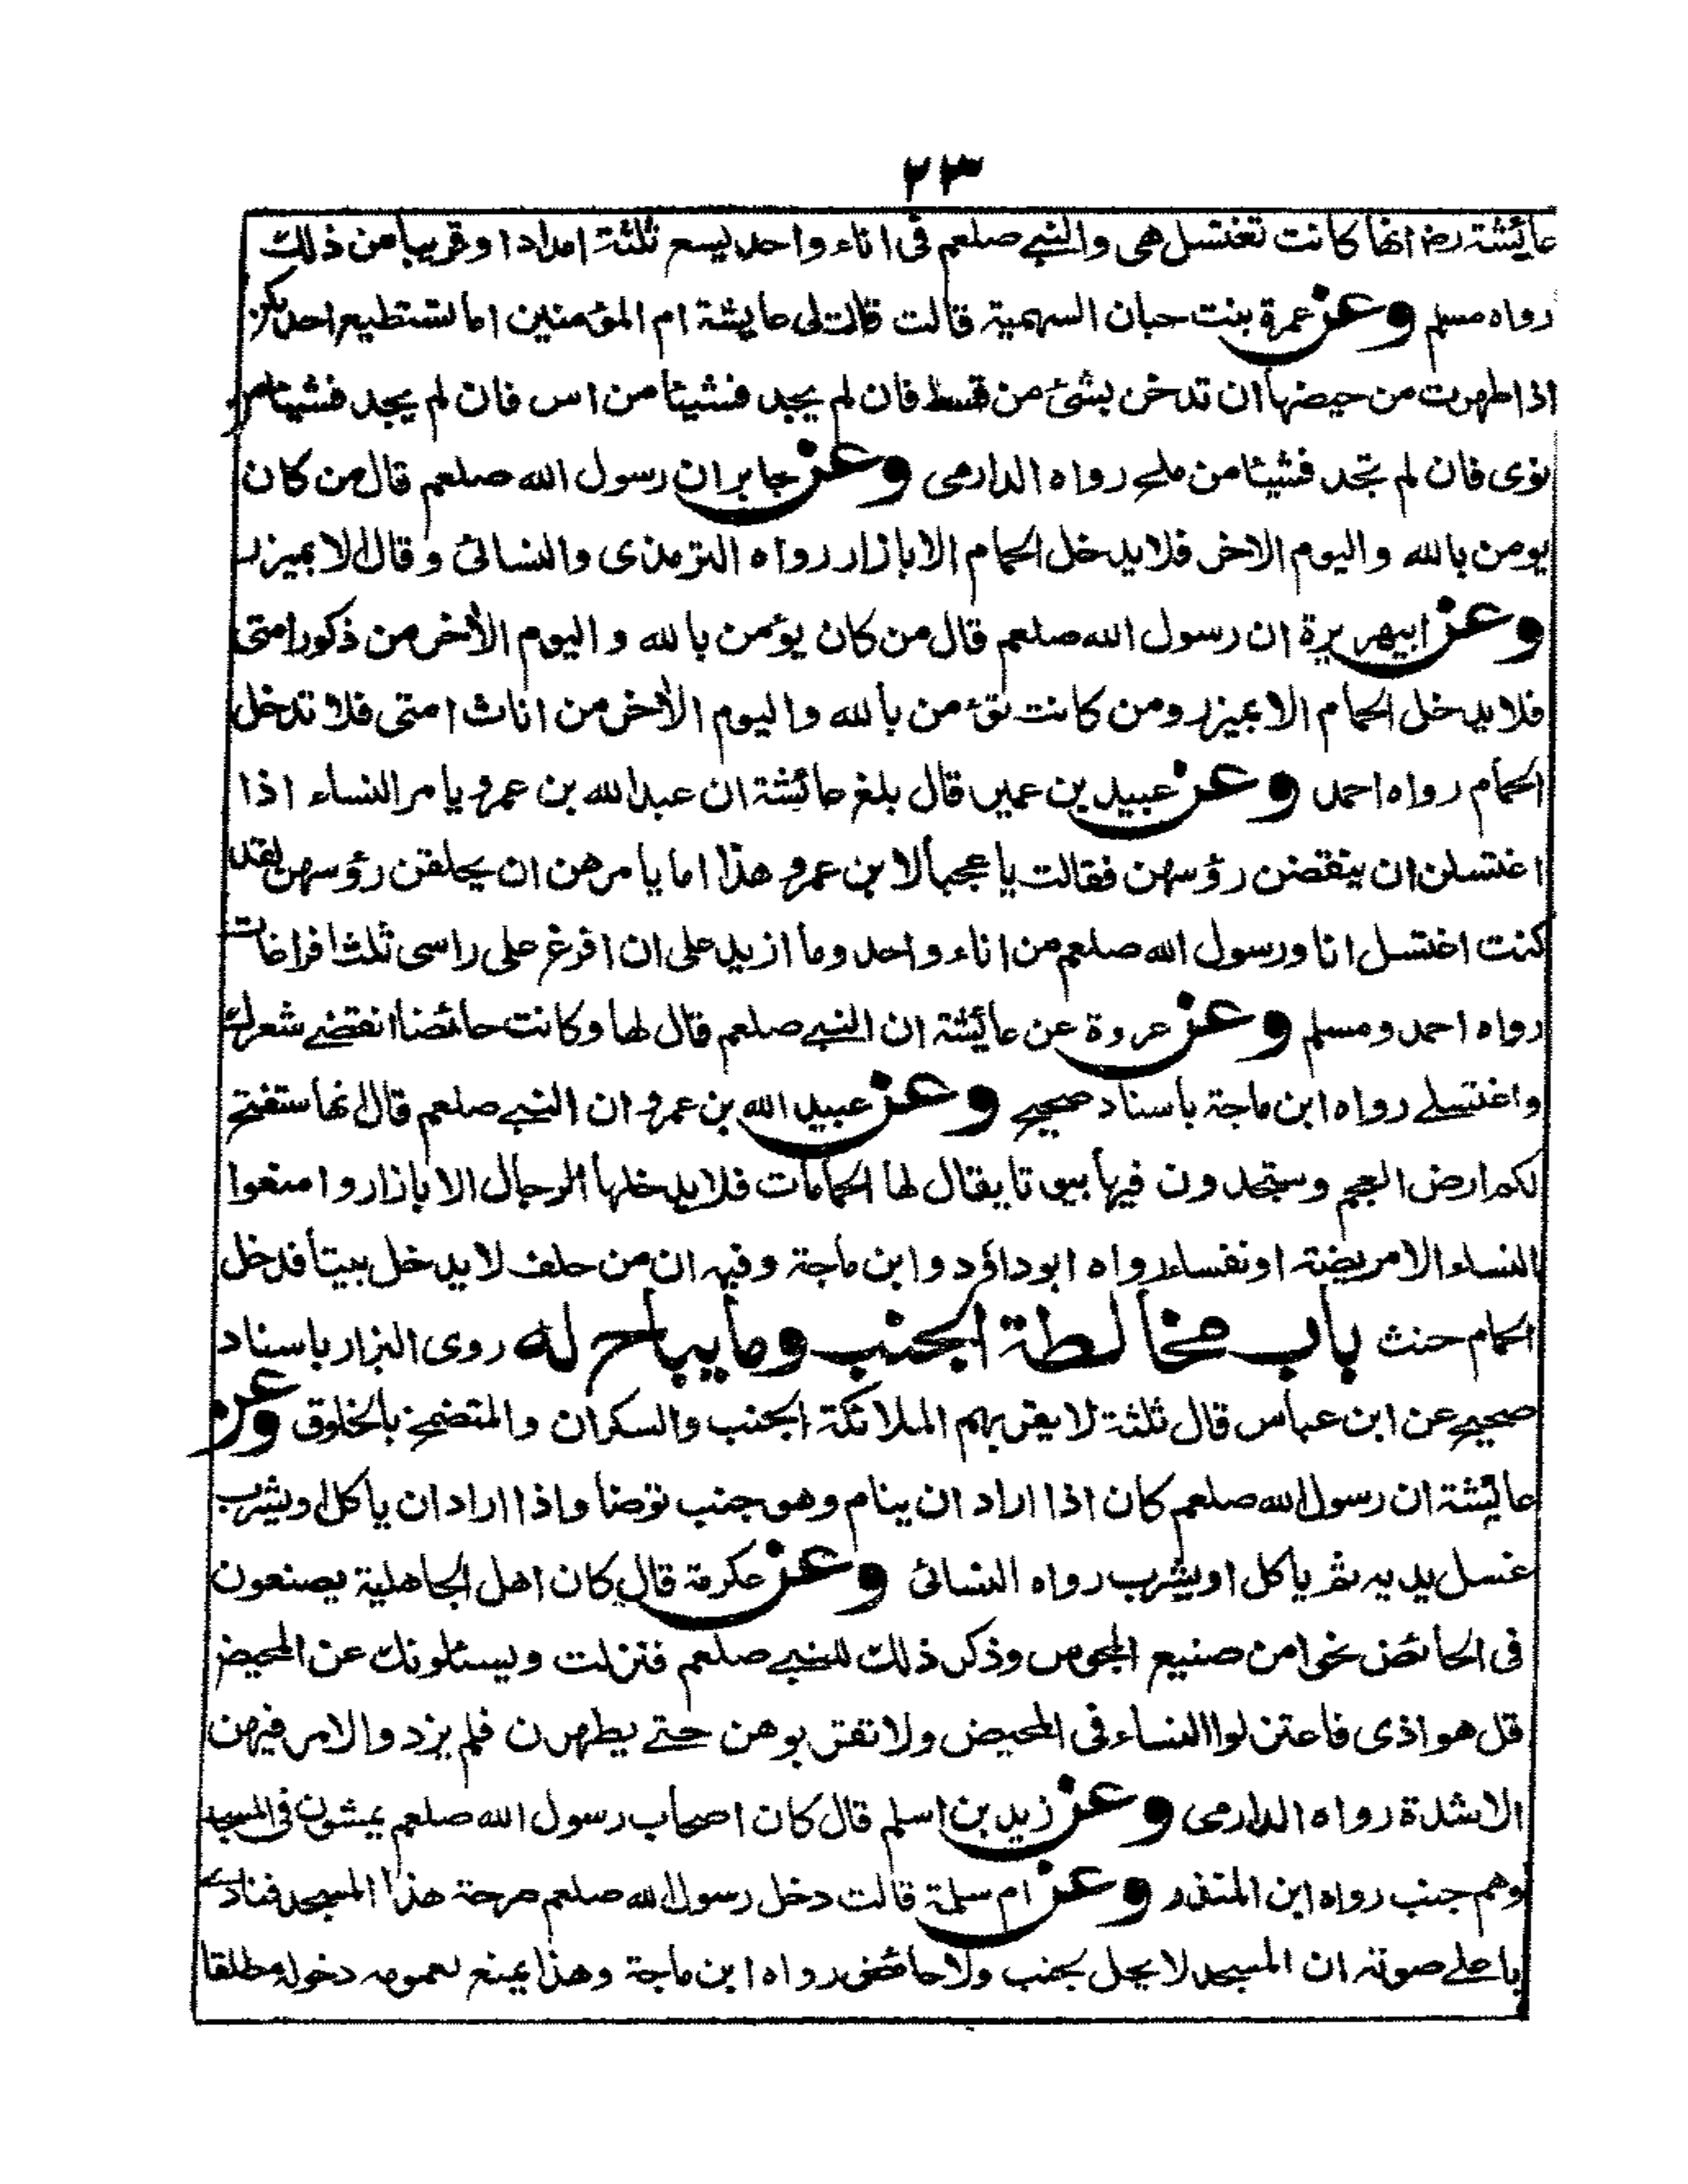 ٢٣
عائيشة رض انها كانت تغتسل هى والنبي صلعم فى اناء واحد يسع ثلثة امداد او قريبا من ذلك
رواه مسلم وعن عمرة بنت حبان السهمية قالت قالت لى عايشة ام المؤمنين اما تستطيع احدكن
اذا طهرت من حيضها ان تدخن بشئ من قسط فان لم يجد فشيئا من اس فان لم يجد فشيئا من
نوى فان لم تجد فشيئا من ملح رواه الدارمى وعن جابر ان رسول الله صلعم قال من كان
يومن بالله واليوم الاخر فلا يدخل الحمام الا بازار رواه الترمذى والنسائى وقال الا بميزر
وعن ابيهريرة ان رسول الله صلعم قال من كان يؤمن بالله واليوم الأخر من ذكور امتى
فلا يدخل الحمام الا بميزر ومن كانت تؤمن بالله واليوم الأخر من اناث امتى فلا تدخل
الحمام رواه احمد وعن عبيد بن عمير قال بلغ عائشة ان عبد الله بن عمرو يامر النساء اذا
اغتسلن ان ينقضن رؤسهن فقالت يا عجبا لابن عمرو هذا اما يامرهن ان يحلقن رؤسهن لقد
كنت اغتسل انا ورسول الله صلعم من اناء واحد وما ازيد على ان افرغ على راسى ثلث افراغات
رواه احمد ومسلم وعن عروة عن عائيشة ان النبي صلعم قال لها وكانت حائضا انقضي شعرك
واغتسلي رواه ابن ماجة باسناد صحيح وعن عبيد الله بن عمرو ان النبي صلعم قال انها ستفتح
لكم ارض العجم وستجدون فيها بيوتا يقال لها الحمامات فلا يدخلها الرجال الا بازار وامنعوا
النساء الا مريضة او نفساء رواه ابو داؤد وابن ماجة وفيه ان من حلف لا يدخل بيتا فدخل
الحمام حنث باب مخالطة الجنب وما يباح له روى البزار باسناد
صحيح عن ابن عباس قال ثلثة لا يقربهم الملائكة الجنب والسكران والمتضمخ بالخلوق وعن
عائيشة ان رسول الله صلعم كان اذا اراد ان ينام وهو جنب توضا واذا اراد ان ياكل او يشرب
غسل يديه ثم ياكل او يشرب رواه النسائى وعن عكرمة قال كان اهل الجاهلية يصنعون
فى الحائض نحوا من صنيع المجوس وذكر ذلك للنبي صلعم فنزلت ويسئلونك عن المحيض
قل هو اذى فاعتزلوا النساء فى المحيض ولا تقربوهن حتے يطهرن فلم يزدد الامر فيهن
الا شدة رواه الدارمى وعن زيد بن اسلم قال كان اصحاب رسول الله صلعم يمشون فى المسجد
وهم جنب رواه ابن المنذر وعن ام سلمة قالت دخل رسول الله صلعم صرحة هذا المسجد فنادے
باعلے صوته ان المسجد لا يحل لجنب ولا حائض رواه ابن ماجة وهذا يمنع لعمومه دخوله مطلقا